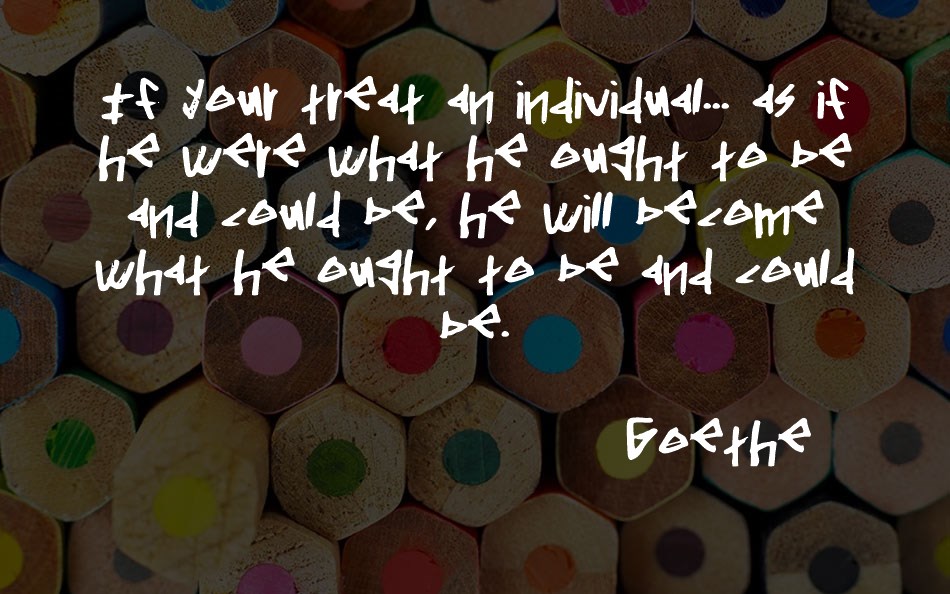 If your treat an individual... as if
he were what he ought to be
and could be, he will become
what he ought to be and could
be.
Goethe